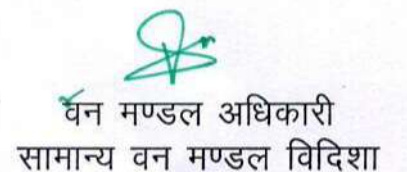 वन मण्डल अधिकारी
सामान्य वन मण्डल विदिशा